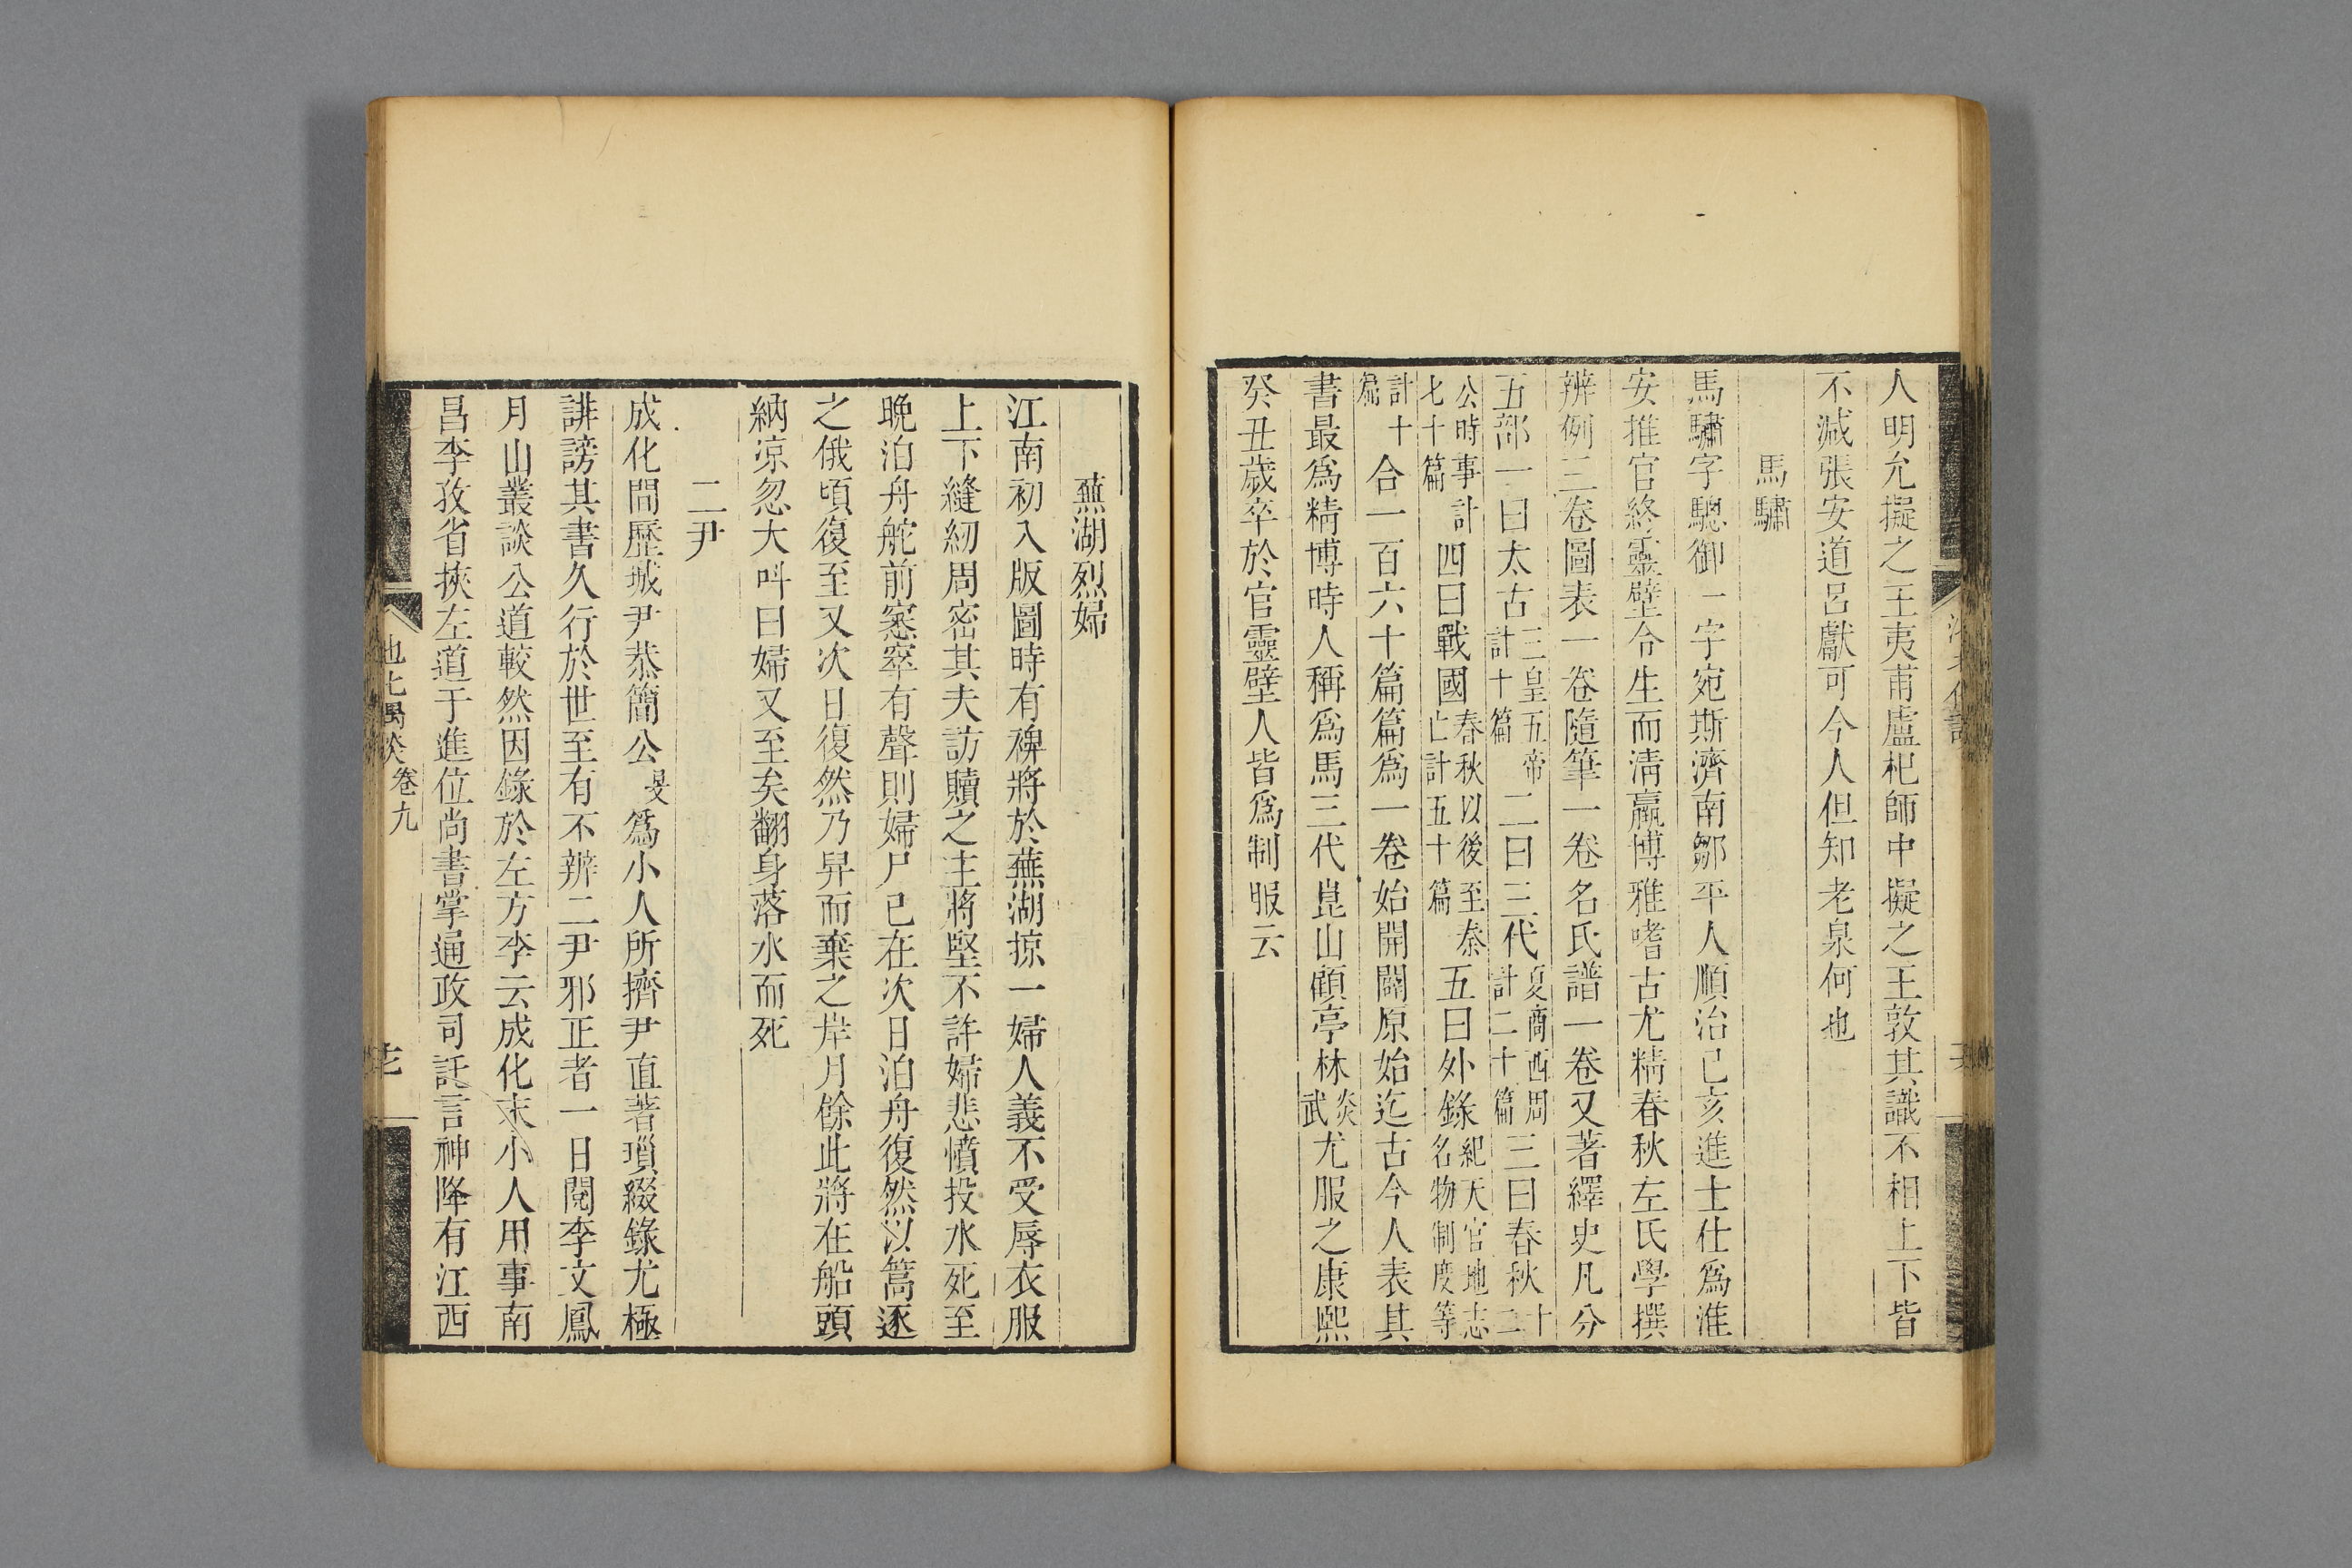 人明允擬之王夷甫盧杞師中擬之王敦其識不相上下皆
不減張安道呂獻可今人但知老泉何也
馬驌
馬驌字驄御一字宛斯濟南鄒平人順治己亥進士仕爲淮
安推官終靈壁令生而清羸博雅嗜古尤精春秋左氏學撰
辨例三卷圖表一卷隨筆一卷名氏譜一卷又著繹史凡分
五部一曰太古三皇五帝計十篇二曰三代夏商西周計二十篇三曰春秋十二
公時事計七十篇四曰戰國春秋以後至秦亡計五十篇五曰外錄紀天官地志名物制度等
計十篇合一百六十篇篇爲一卷始開闢原始迄古今人表其
書最爲精博時人稱爲馬三代崑山顧亭林炎武尤服之康熙
癸丑歲卒於官靈壁人皆爲制服云
蕪湖烈婦
江南初入版圖時有裨將於蕪湖掠一婦人義不受辱衣服
上下縫紉周密其夫訪贖之主將堅不許婦悲憤投水死至
晚泊舟舵前窸窣有聲則婦尸已在次日泊舟復然以篙逐
之俄頃復至又次日復然乃舁而棄之岸月餘此將在船頭
納凉忽大叫曰婦又至矣翻身落水而死
二尹
成化間歷城尹恭簡公旻爲小人所擠尹直著瑣綴錄尤極
誹謗其書久行於世至有不辨二尹邪正者一日閱李文鳳
月山叢談公道較然因錄於左方李云成化末小人用事南
昌李孜省挾左道于進位尚書掌通政司託言神降有江西
卷九